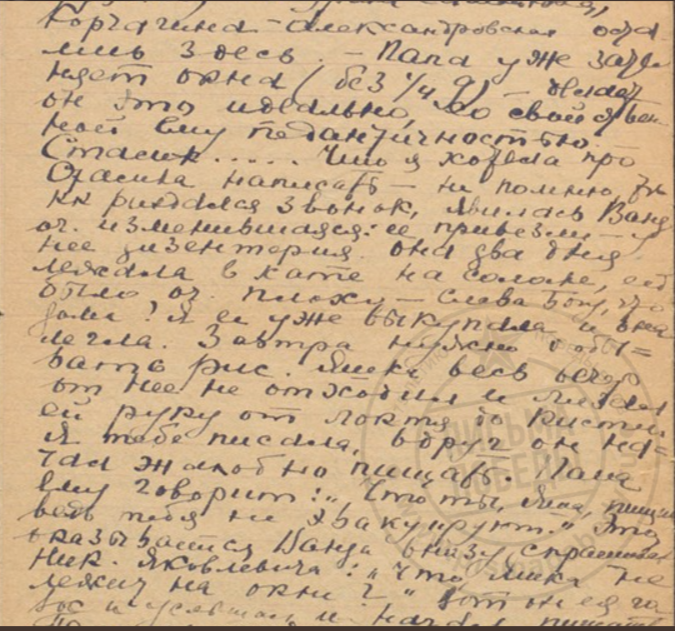 Корчагина - Александровская оста-
лись здесь. - Папа уже
окна (без 1/4 9) - делает
он это идеально, со свойствен-
ной ему педантичностью.
Стасик..... Что я хотела про
Стасика написать - не помню,
раздался звонок, явилась Ванда
оч. изменившаяся: ее привезли - у
нее дизентерия. она два дня
лежала в хате на соломе, ей
было оч. плохо - слава Богу, что
дома! Я ее уже выкупала и она
легла. Завтра нужно
рис. Яшка весь вечер
от нее не отходил и лизал
ей руку от локтя до кисти.
Я тебе писала, вдруг он на=
чал жалобно пищать. Папа
ему говорит: "Что ты, Яша, пищишь
ведь тебя не эвакуируют." Это
оказывается Ванда внизу спрашивает
Ник. Яковлевича: "Что Яшка не
лежит на окне?" Вот он ея го-
лос и услышал и начал пищать
ПИСЬМА
ПОБЕДЫ